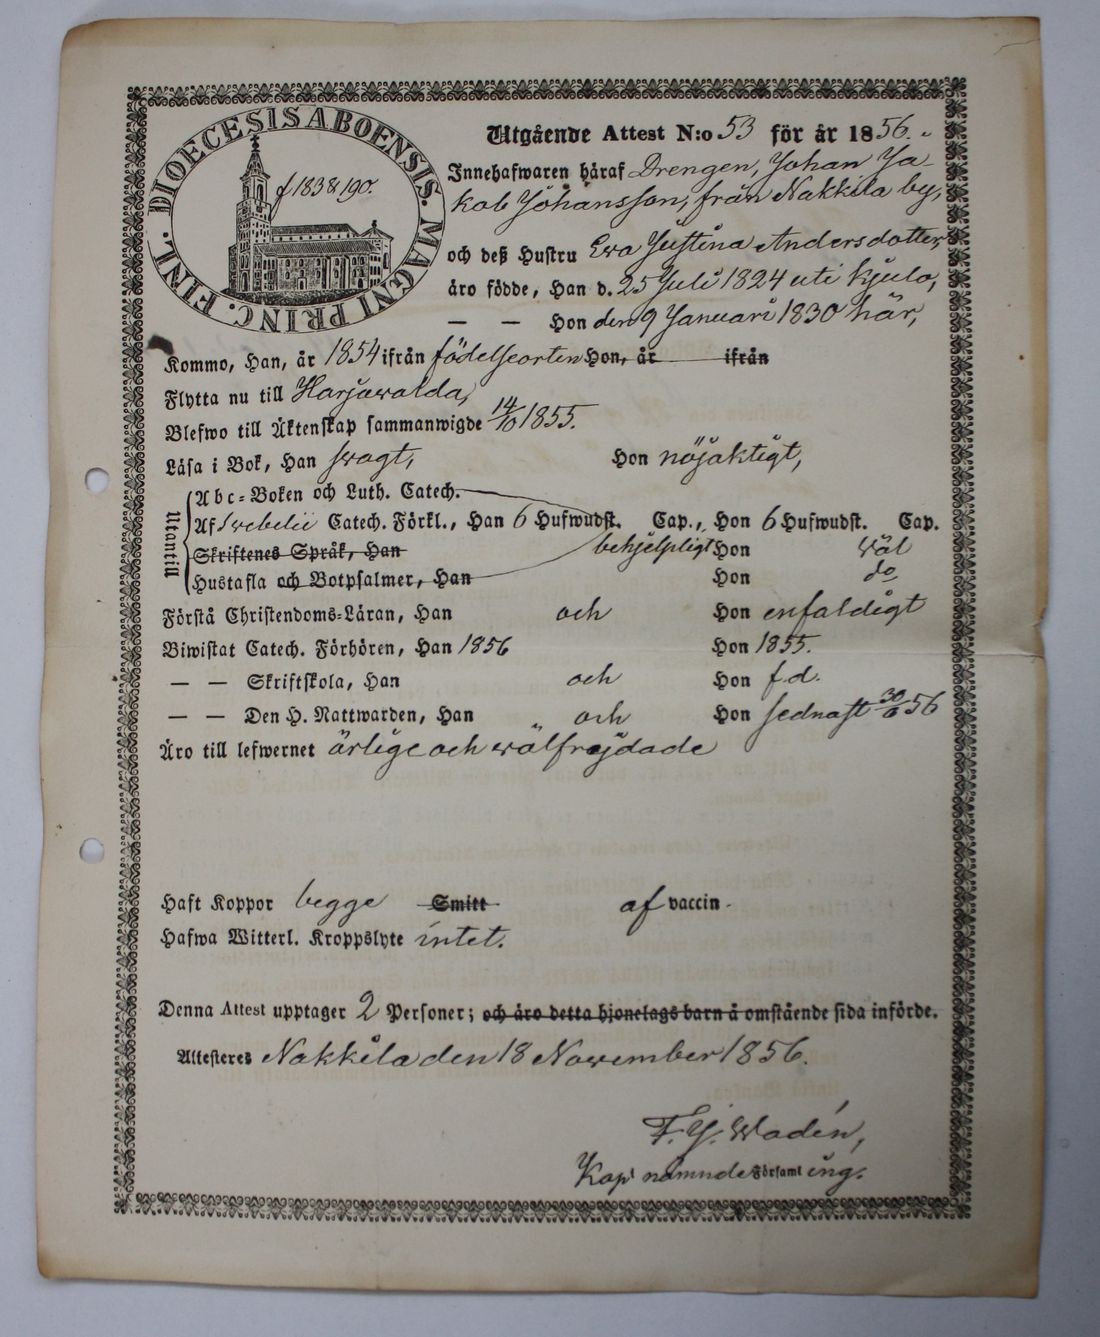 FINL. DIOECESIS ABOENSIS. MAGNI PRINC.
f 1838 190.
Utgående Attest N:o 53 för år 1856.
Innehafwaren häraf Drengen, Johan Ja
kob Johansson, från Nakkila by,
och deß Hustru Eva Justina Andersdotter,
äro födde, Han d. 25 Juli 1824 uti Kjulo,
— — Hon den 9 Januari 1830 här,
Kommo, Han, år 1854 ifrån födelseorten Hon, år ifrån
Flytta nu till Harjawalda,
Blefwo till Äktenskap sammanwigde 14/10 1855.
Läsa i Bok, Han swagt, Hon nöjaktigt,
Utantill
Abc-Boken och Luth. Catech.
Af Swebelii Catech. Förkl., Han 6 Hufwudst. Cap., Hon 6 Hufwudst. Cap.
Skriftenes Språk, Han behjelpligt Hon wäl
Hustafla och Botpsalmer, Han Hon do
Förstå Christendoms-Läran, Han och Hon enfaldigt
Biwistat Catech. Förhören, Han 1856 Hon 1855.
— — Skriftskola, Han och Hon f.d.
— — Den H. Nattwarden, Han " och Hon sednast 56
Äro till lefwernet ärlige och wälfrejdade
Haft Koppor begge Smitt af vaccin.
Hafwa Witterl. Kroppslyte intet.
Denna Attest upptager 2 Personer; och äro detta hjonelags barn å omstående sida införde.
Attesteres Nakkila den 18 November 1856.
F. J. Wadén,
Kapl nämnde Församl ing.